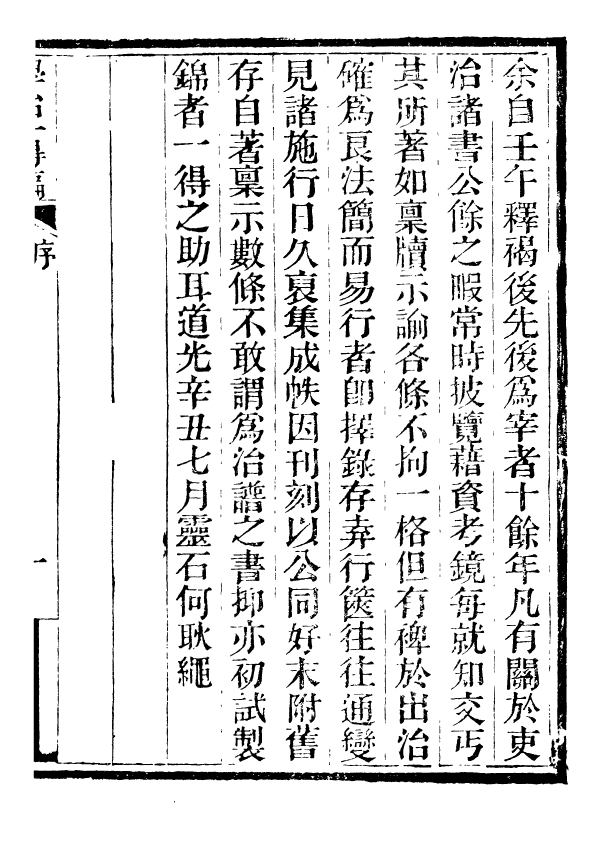 余自壬午釋褐後先後爲宰者十餘年凡有關於吏
治諸書公餘之暇常時披覽藉資考鏡每就知交丐
其所著如稟牘示諭各條不拘一格但有裨於出治
確爲良法簡而易行者卽擇錄存弆行篋往往通變
見諸施行日久裒集成帙因刊刻以公同好末附舊
存自著稟示數條不敢謂爲治譜之書抑亦初試製
錦者一得之助耳道光辛丑七月靈石何耿繩
序
一